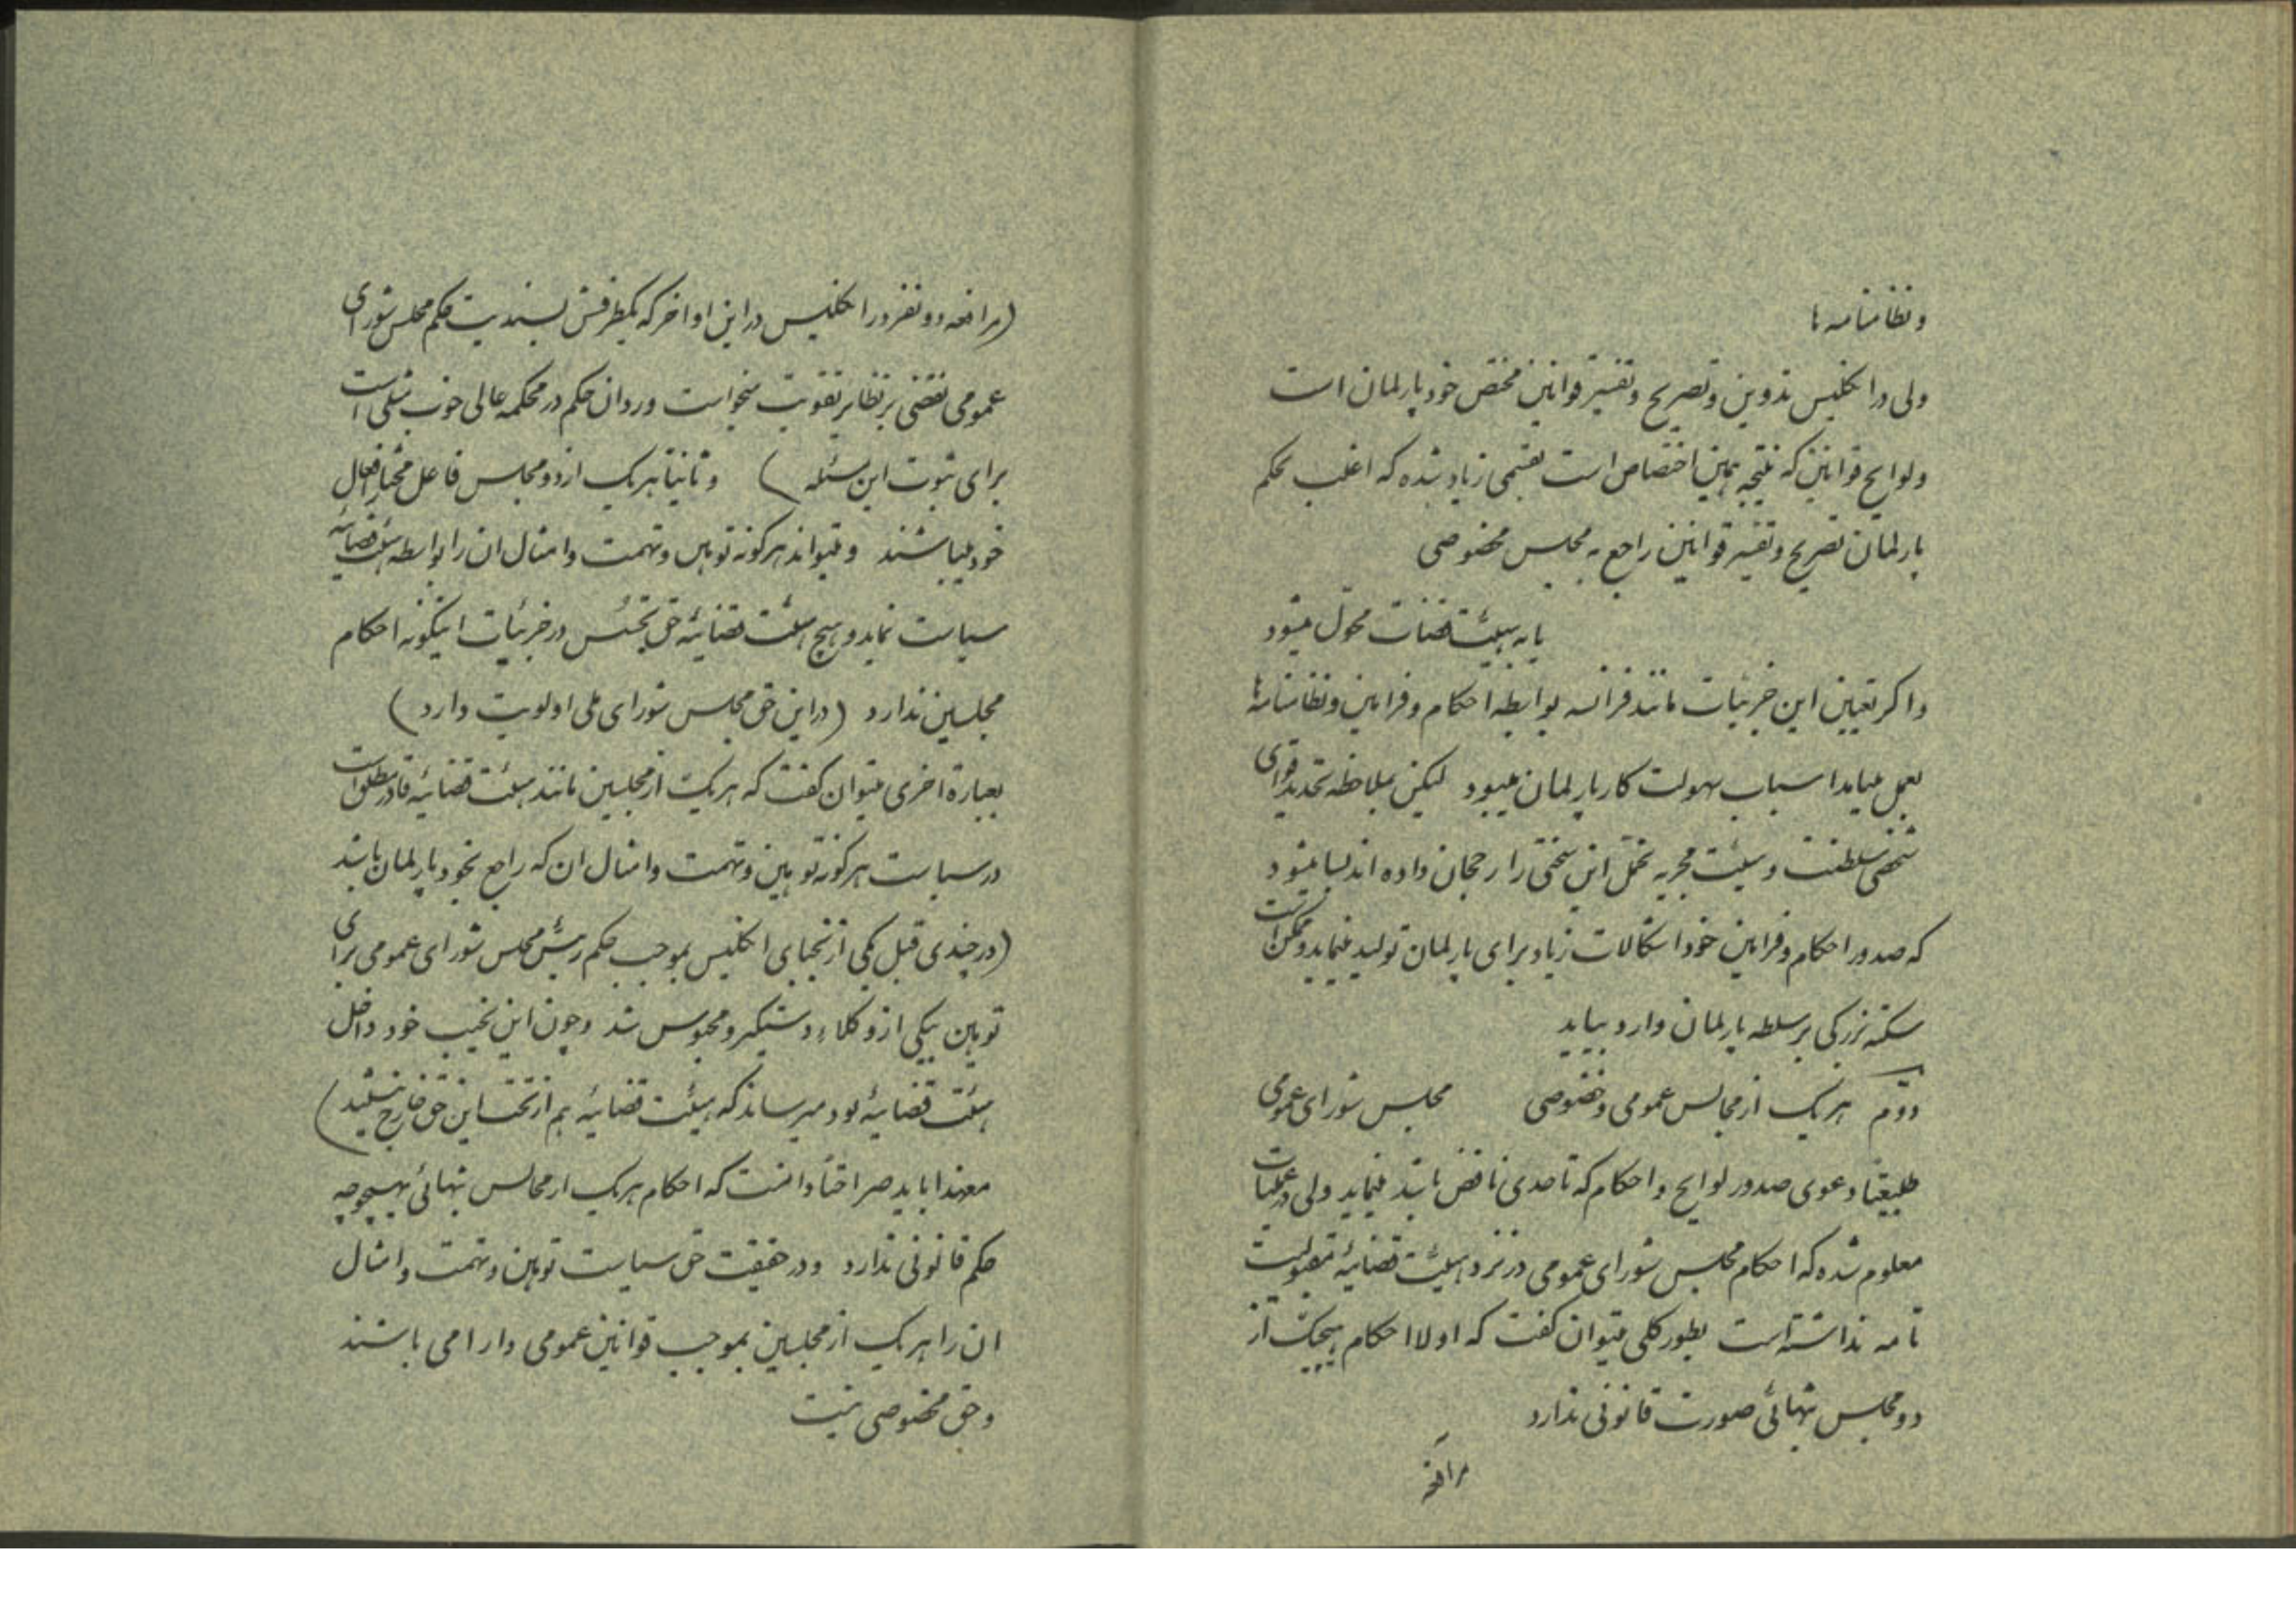 و نظامنامه ها
ولی در انکلیس تدوین و تصریح و تفسیر قوانین مختص خود پارلمان است
و لوایح قوانین که نتیجه همین اختصاص است بقسمی زیاد شده که اغلب بحکم
پارلمان تصریح و تفسیر قوانین راجع به مجلس مخصوصی
یا به هیئت قضات محول میشود
و اکر تعیین این جزئیات مانند فرانسه بواسطه احکام و فرامین و نظامنامه ها
بعمل میامد اسباب سهولت کار پارلمان میبود لیکن بملاحظه تحدید قوای
شخص سلطنت و هیئت مجریه تحمل این سختی را رجحان داده اند بسا میشود
که صدور احکام و فرامین خود اشکالات زیاد برای پارلمان تولید مینماید و ممکن است
سکته بزرکی بر سلطه پارلمان وارد بیاید
دوم هریک از مجالس عمومی و خصوصی مجلس شورای عمومی
طبیعتا دعوی صدور لوایح و احکام که تا حدی ناقض باشد مینماید ولی در عملیات
معلوم شده که احکام مجلس شورای عمومی در نزد هیئت قضائیه مقبولیت
تامه نداشته است بطور کلی میتوان کفت که اولا احکام هیچیک از
دو مجلس بتنهائی صورت قانونی ندارد
مرافعه
(مرافعه دو نفر در انکلیس در این اواخر که یکطرفش بسندیت حکم مجلس شورای
عمومی نقضی بر نظایر تقویت میخواست و رد ان حکم در محکمه عالی خوب مثلی است
برای ثبوت این مسئله ) و ثانیا هریک از دو مجلس فاعل مختار افعال
خود میباشند و میتواند هرکونه توهین و تهمت و امثال ان را بواسطه هیئت قضائیه
سیاست نماید و هیچ هیئت قضائیه حق تجسس در جزئیات اینکونه احکام
مجلسین ندارد (در این حق مجلس شورای ملی اولویت دارد)
بعبارة اخری میتوان کفت که هریک از مجلسین مانند هیئت قضائیه قادر مطلق است
در سیاست هرکونه توهین و تهمت و امثال ان که راجع بخود پارلمان باشد
(در چندی قبل یکی از نجبای انکلیس بموجب حکم رئیس مجلس شورای عمومی برای
توهین بیکی از وکلاء دستکیر و محبوس شد و چون این نجیب خود داخل
هیئت قضائیه بود میرساند که هیئت قضائیه هم از تحت این حق خارج نیستند)
معهذا باید صراحتا دانست که احکام هریک از مجالس بتنهائی بهیچوجه
حکم قانونی ندارد و در حقیقت حق سیاست توهین و تهمت و امثال
ان را هریک از مجلسین بموجب قوانین عمومی دارا می باشند
و حق مخصوصی نیست